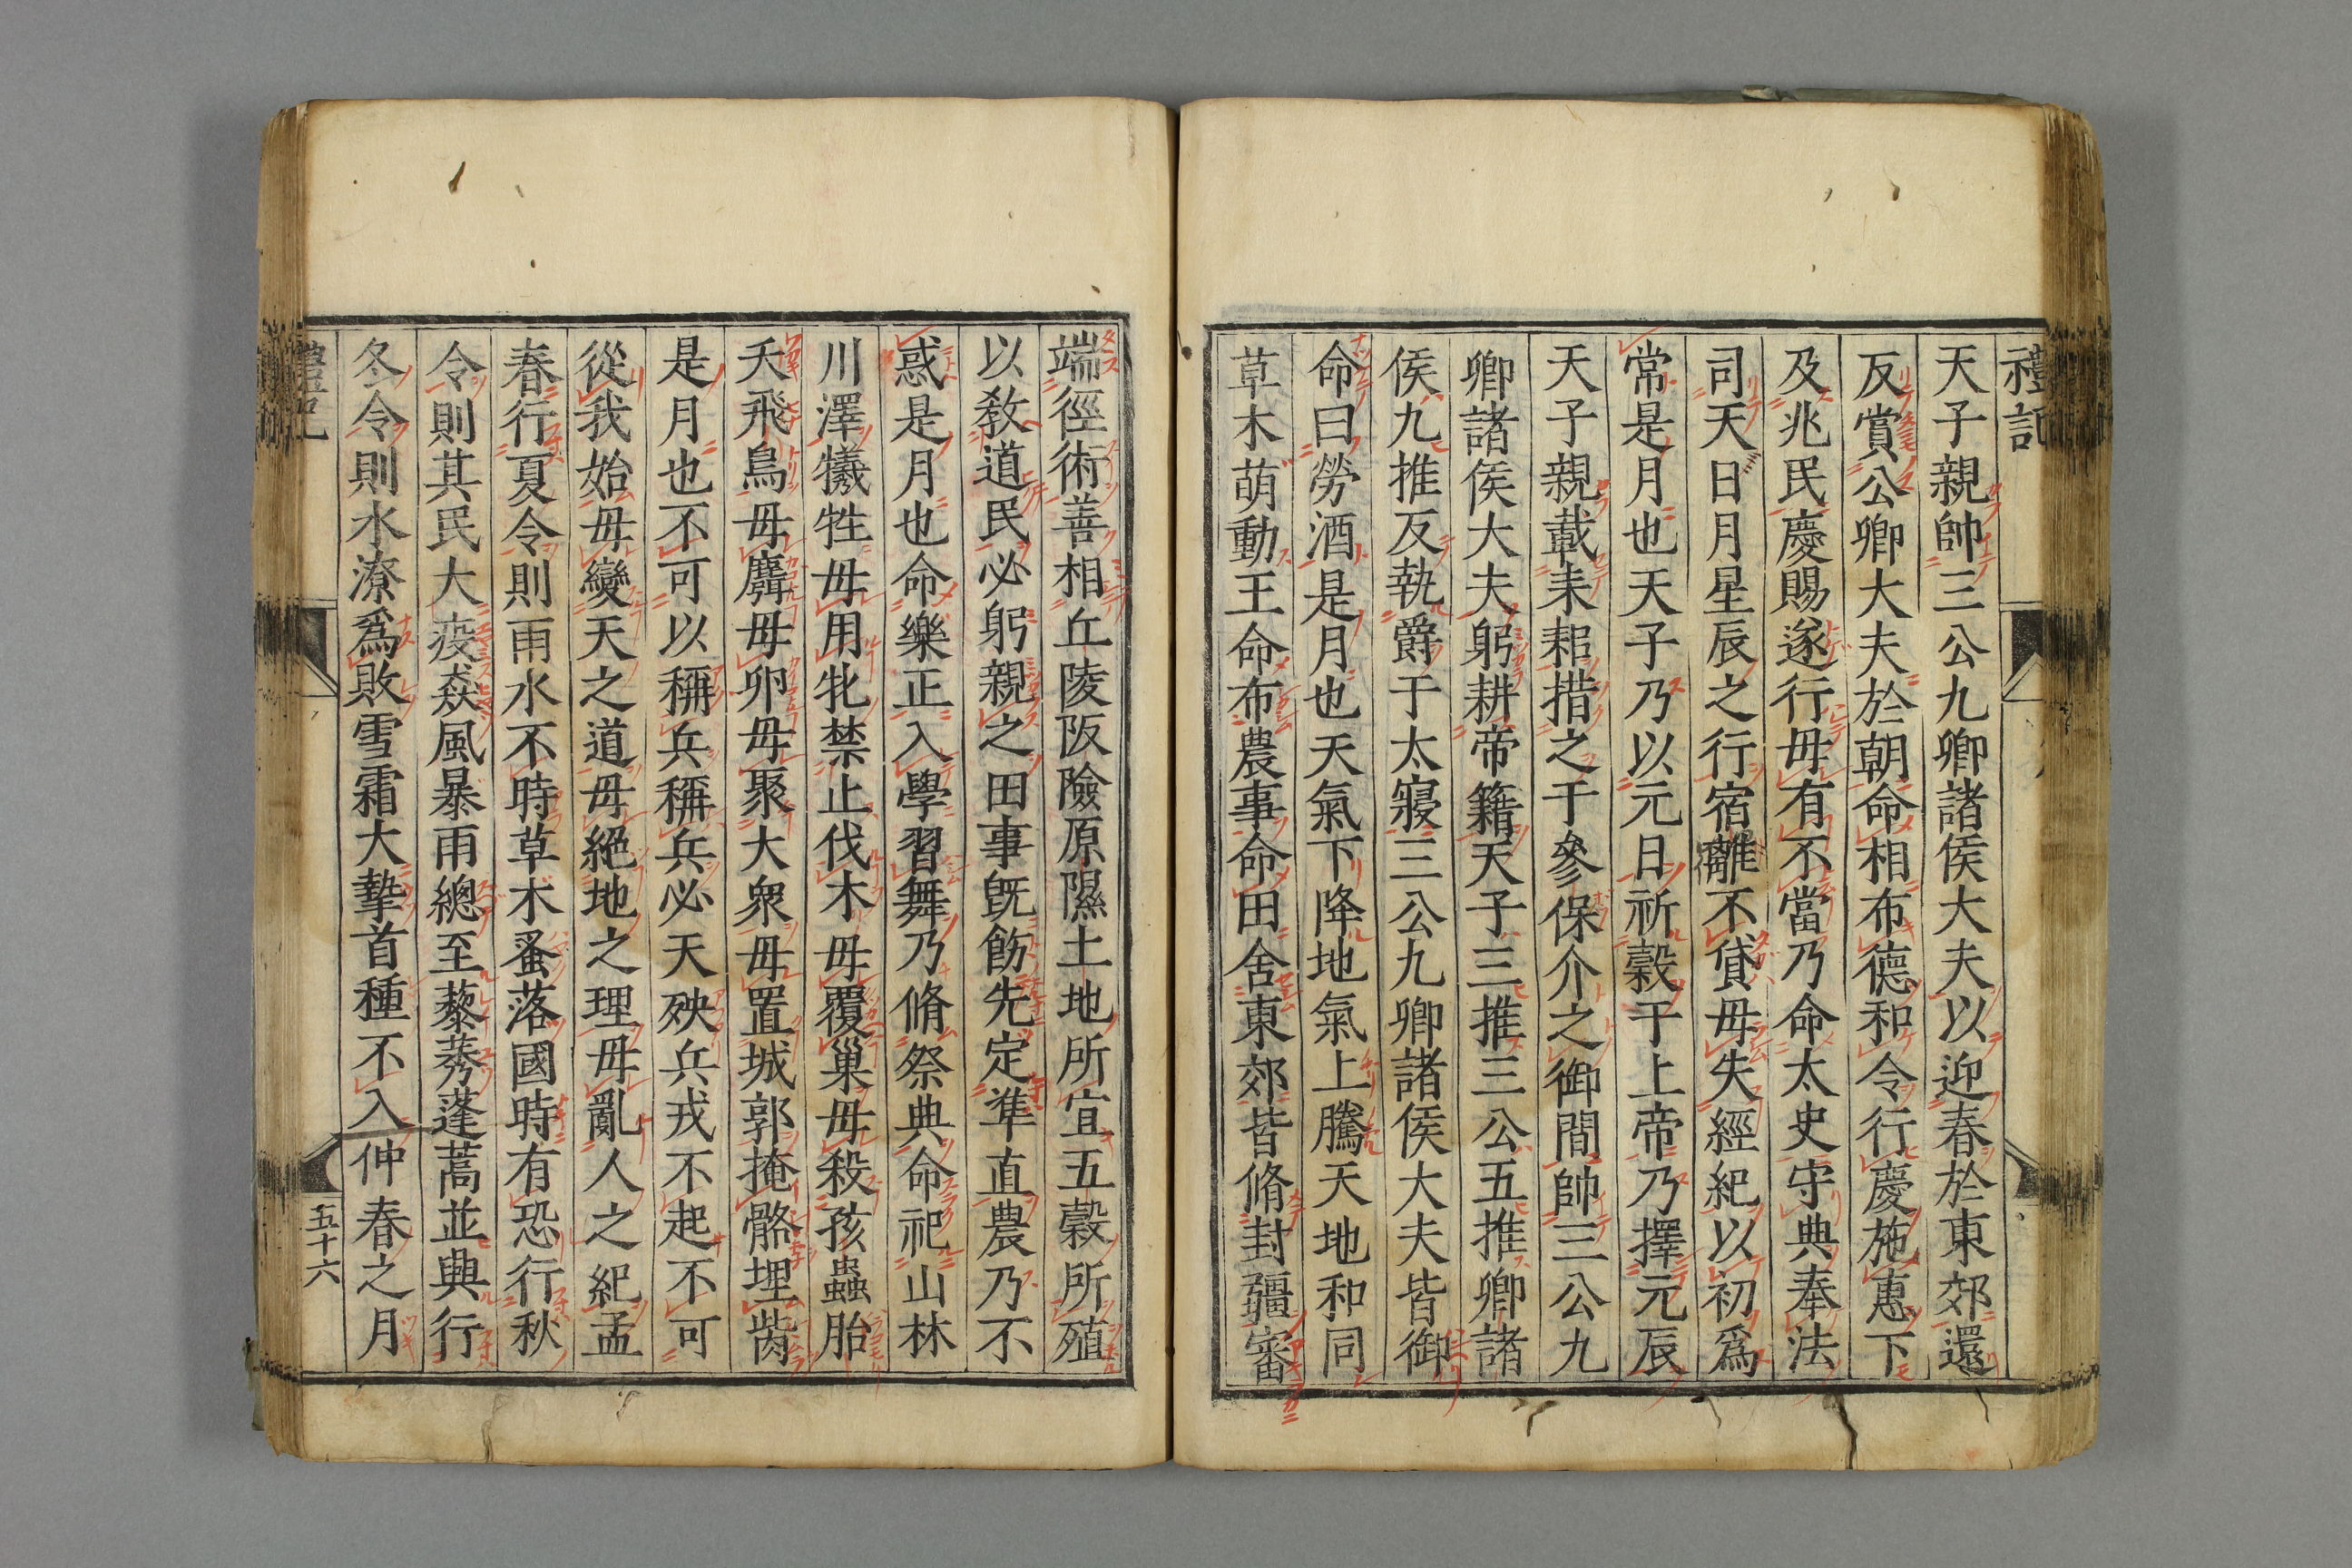 禮記
天子親帥三公九卿諸侯大夫以迎春於東郊還
反賞公卿大夫於朝命相布德和令行慶施惠下
及兆民慶賜遂行毋有不當乃命太史守典奉法
司天日月星辰之行宿離不貸毋失經紀以初爲
常是月也天子乃以元日祈穀于上帝乃擇元辰
天子親載耒耜措之于參保介之御間帥三公九
卿諸侯大夫躬耕帝籍天子三推三公五推卿諸
侯九推反執爵于太寢三公九卿諸侯大夫皆御
命曰勞酒是月也天氣下降地氣上騰天地和同
草木萌動王命布農事命田舍東郊皆脩封疆審
端徑術善相丘陵阪險原隰土地所宜五穀所殖
以敎道民必躬親之田事旣飭先定準直農乃不
惑是月也命樂正入學習舞乃脩祭典命祀山林
川澤犧牲毋用牝禁止伐木毋覆巢毋殺孩蟲胎
夭飛鳥毋麛毋卵毋聚大衆毋置城郭掩骼埋胔
是月也不可以稱兵稱兵必天殃兵戎不起不可
從我始毋變天之道毋絕地之理毋亂人之紀孟
春行夏令則雨水不時草木蚤落國時有恐行秋
令則其民大疫猋風暴雨總至藜莠蓬蒿並興行
冬令則水潦爲敗雪霜大摯首種不入仲春之月
禮記
五十六